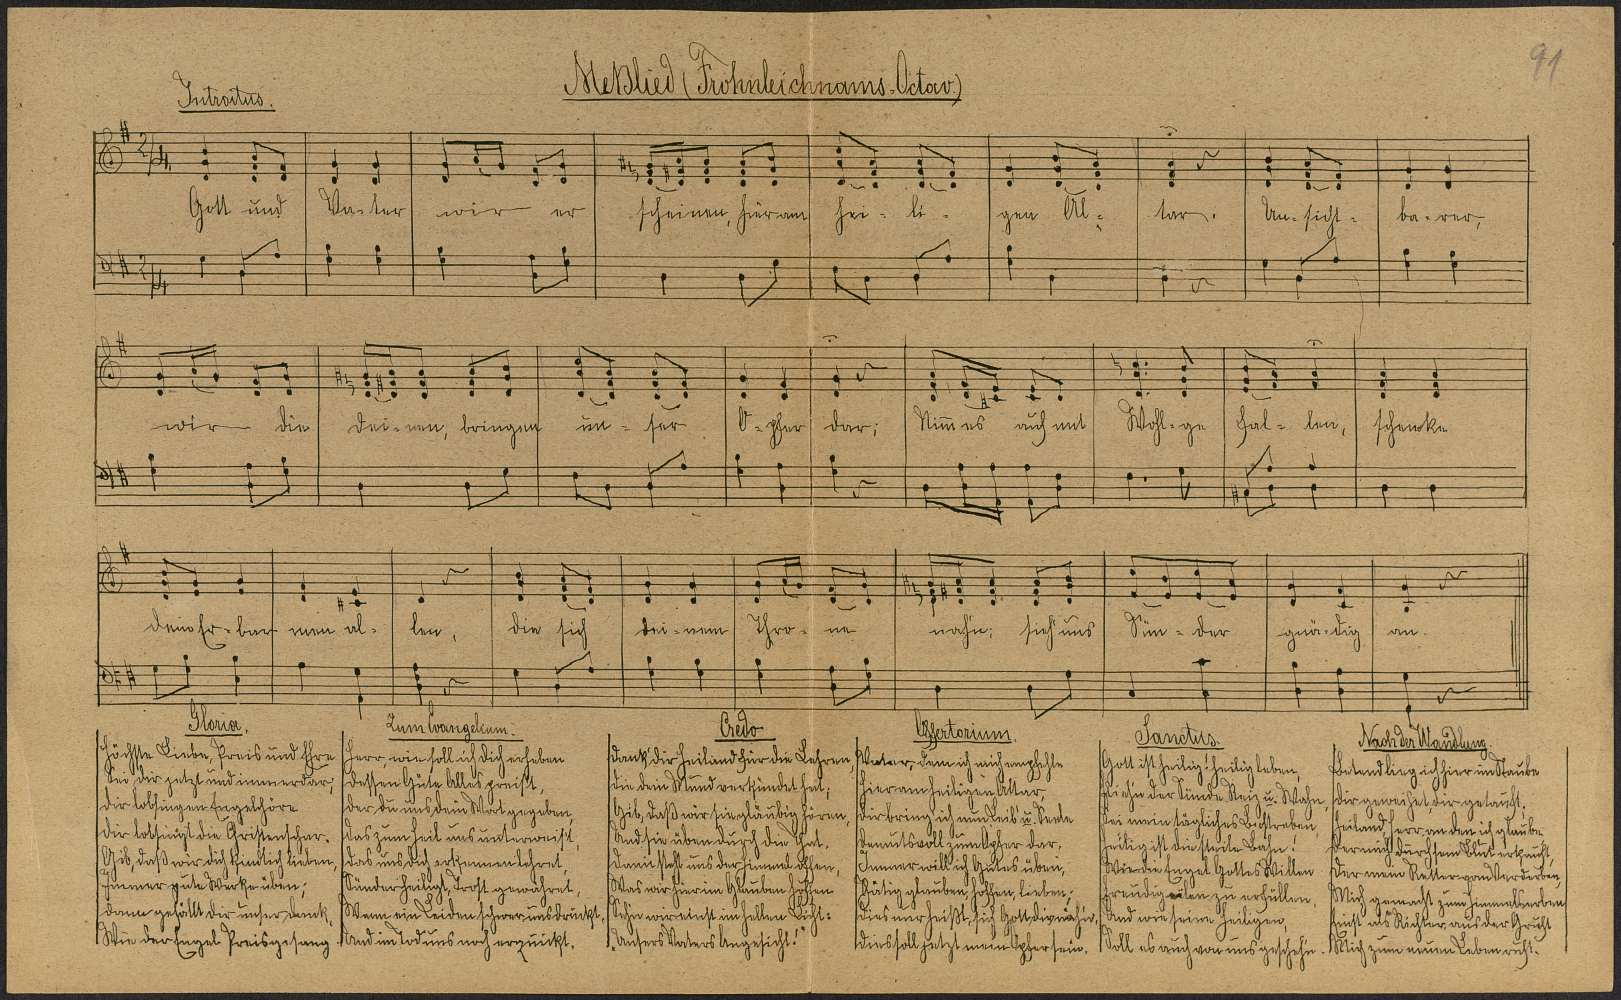 91
Meßlied (Frohnleichnams-Octav.)
Introitus.
Gott und Va-ter wir er scheinen, hier am hei-li-gen Al-tar. Un-sicht-ba-rer,
wir die Dei-nen, bringen un-ser O-pfer dar; Nim̅ es auch mit Wohl-ge fal-len, schenke
dein Er-bar men al-len, die sich dei-nem Thro-ne nah'n; sieh' uns Sün-der gnä-dig an.
Gloria.
Höchste Liebe, Preis und Ehre
Sei dir jetzt und immerdar,
Dir lobsingen Engelchöre
Dir lobsingt die Christenschar.
Gib, daß wir dich kindlich lieben,
Immer gute Werke üben;
Dann gefällt dir unser Dank,
Wie der Engel Preisgesang
Zum Evangelium.
Herr, wie soll ich dich erheben
Dessen Güte Alles preist,
Der du uns dein Wort gegeben,
Das zum Heil uns unterweist,
Das uns dich erkennen lehret,
Sünder heiligt, Trost gewähret,
Wenn ein Leiden schwer uns drückt,
Und im Tod uns noch erquickt.
Credo
Dank dir Heiland für die Lehren,
Die dein Mund verkündet hat;
Gib, daß wir sie gläubig hören,
Und sie üben durch die That.
Dann steht uns der Himmel offen,
Was wir hier im Glauben hoffen
Seh'n wir einst im hellen Licht:
Unsers Vaters Angesicht!
Offertorium.
Vater, dem ich mich empfehle
Hier am heiligen Altar,
Dir bring ich nun Leib u. Seele
Demutsvoll zum Opfer dar,
Immer will ich Gutes üben,
Thätig glauben, hoffen, lieben;
Dies nur heißt, sich Gott
Dies soll jetzt mein Opfer sein.
Sanctus.
Gott ist heilig! heilig leben,
Flieh'n der Sünde Reiz u. Wahn,
Sei mein tägliches Bestreben,
Heilig ist die steile Bahn!
Wie die Engel Gottes Willen
Freudig eilen zu erfüllen,
Und wie seine Heiligen,
Soll es auch von uns gescheh'n.
Nach der Wandlung.
Betend lieg ich hier im Staube
Dir geweihet, dir getauft,
Heiland, Herr, an den ich glaube
Der mich durch sein Blut erkauft,
Der mein Retter vom Verderben,
Mich gemacht zum Himmelserben
Einst als Richter, aus der Gruft
Mich zum neuen Leben ruft.